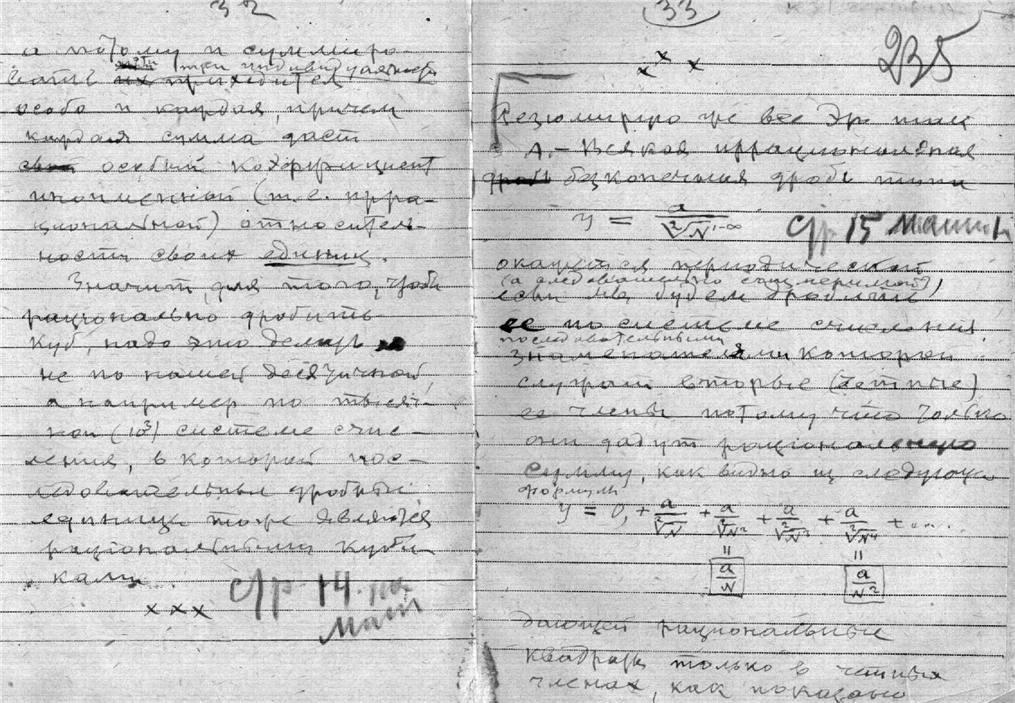 32
а потому и суммиро-
вать их приходится
особо и каждая, причем
каждая сумма даст
особый коэффициент
(т.е. ирра-
циональной) относитель-
ности своих единиц.
Значит, для того, чтоб
рационально дробить
куб, надо это делать
не по нашей десятичной,
а например по тысяч-
ной (10³) системе счис-
ления, в которой пос-
ледовательныя дробныя
единицы тоже являются
рациональными куби-
ками.
× × ×
стр 14 по
маш
33
235
× × ×
Резюмирую же все это так
А.– Всякая иррациональная
дробь безконечная дробь типа
y = a / ²√N¹⁻∞
стр 15 машин
окажется периодической
(а следовательно
если мы будем дробить
ее по системе счисления
последовательными
знаменателями которой
служат вторые (четные)
ее члены потому что только
они дадут рациональную
сумму, как видно из следующ
формулы
y = 0, + a/²√N + a/²√N² + a/²√N³ + a/²√N⁴ + ....
= =
a/N a/N²
дающей рациональные
квадраты только в четных
членах, как показано